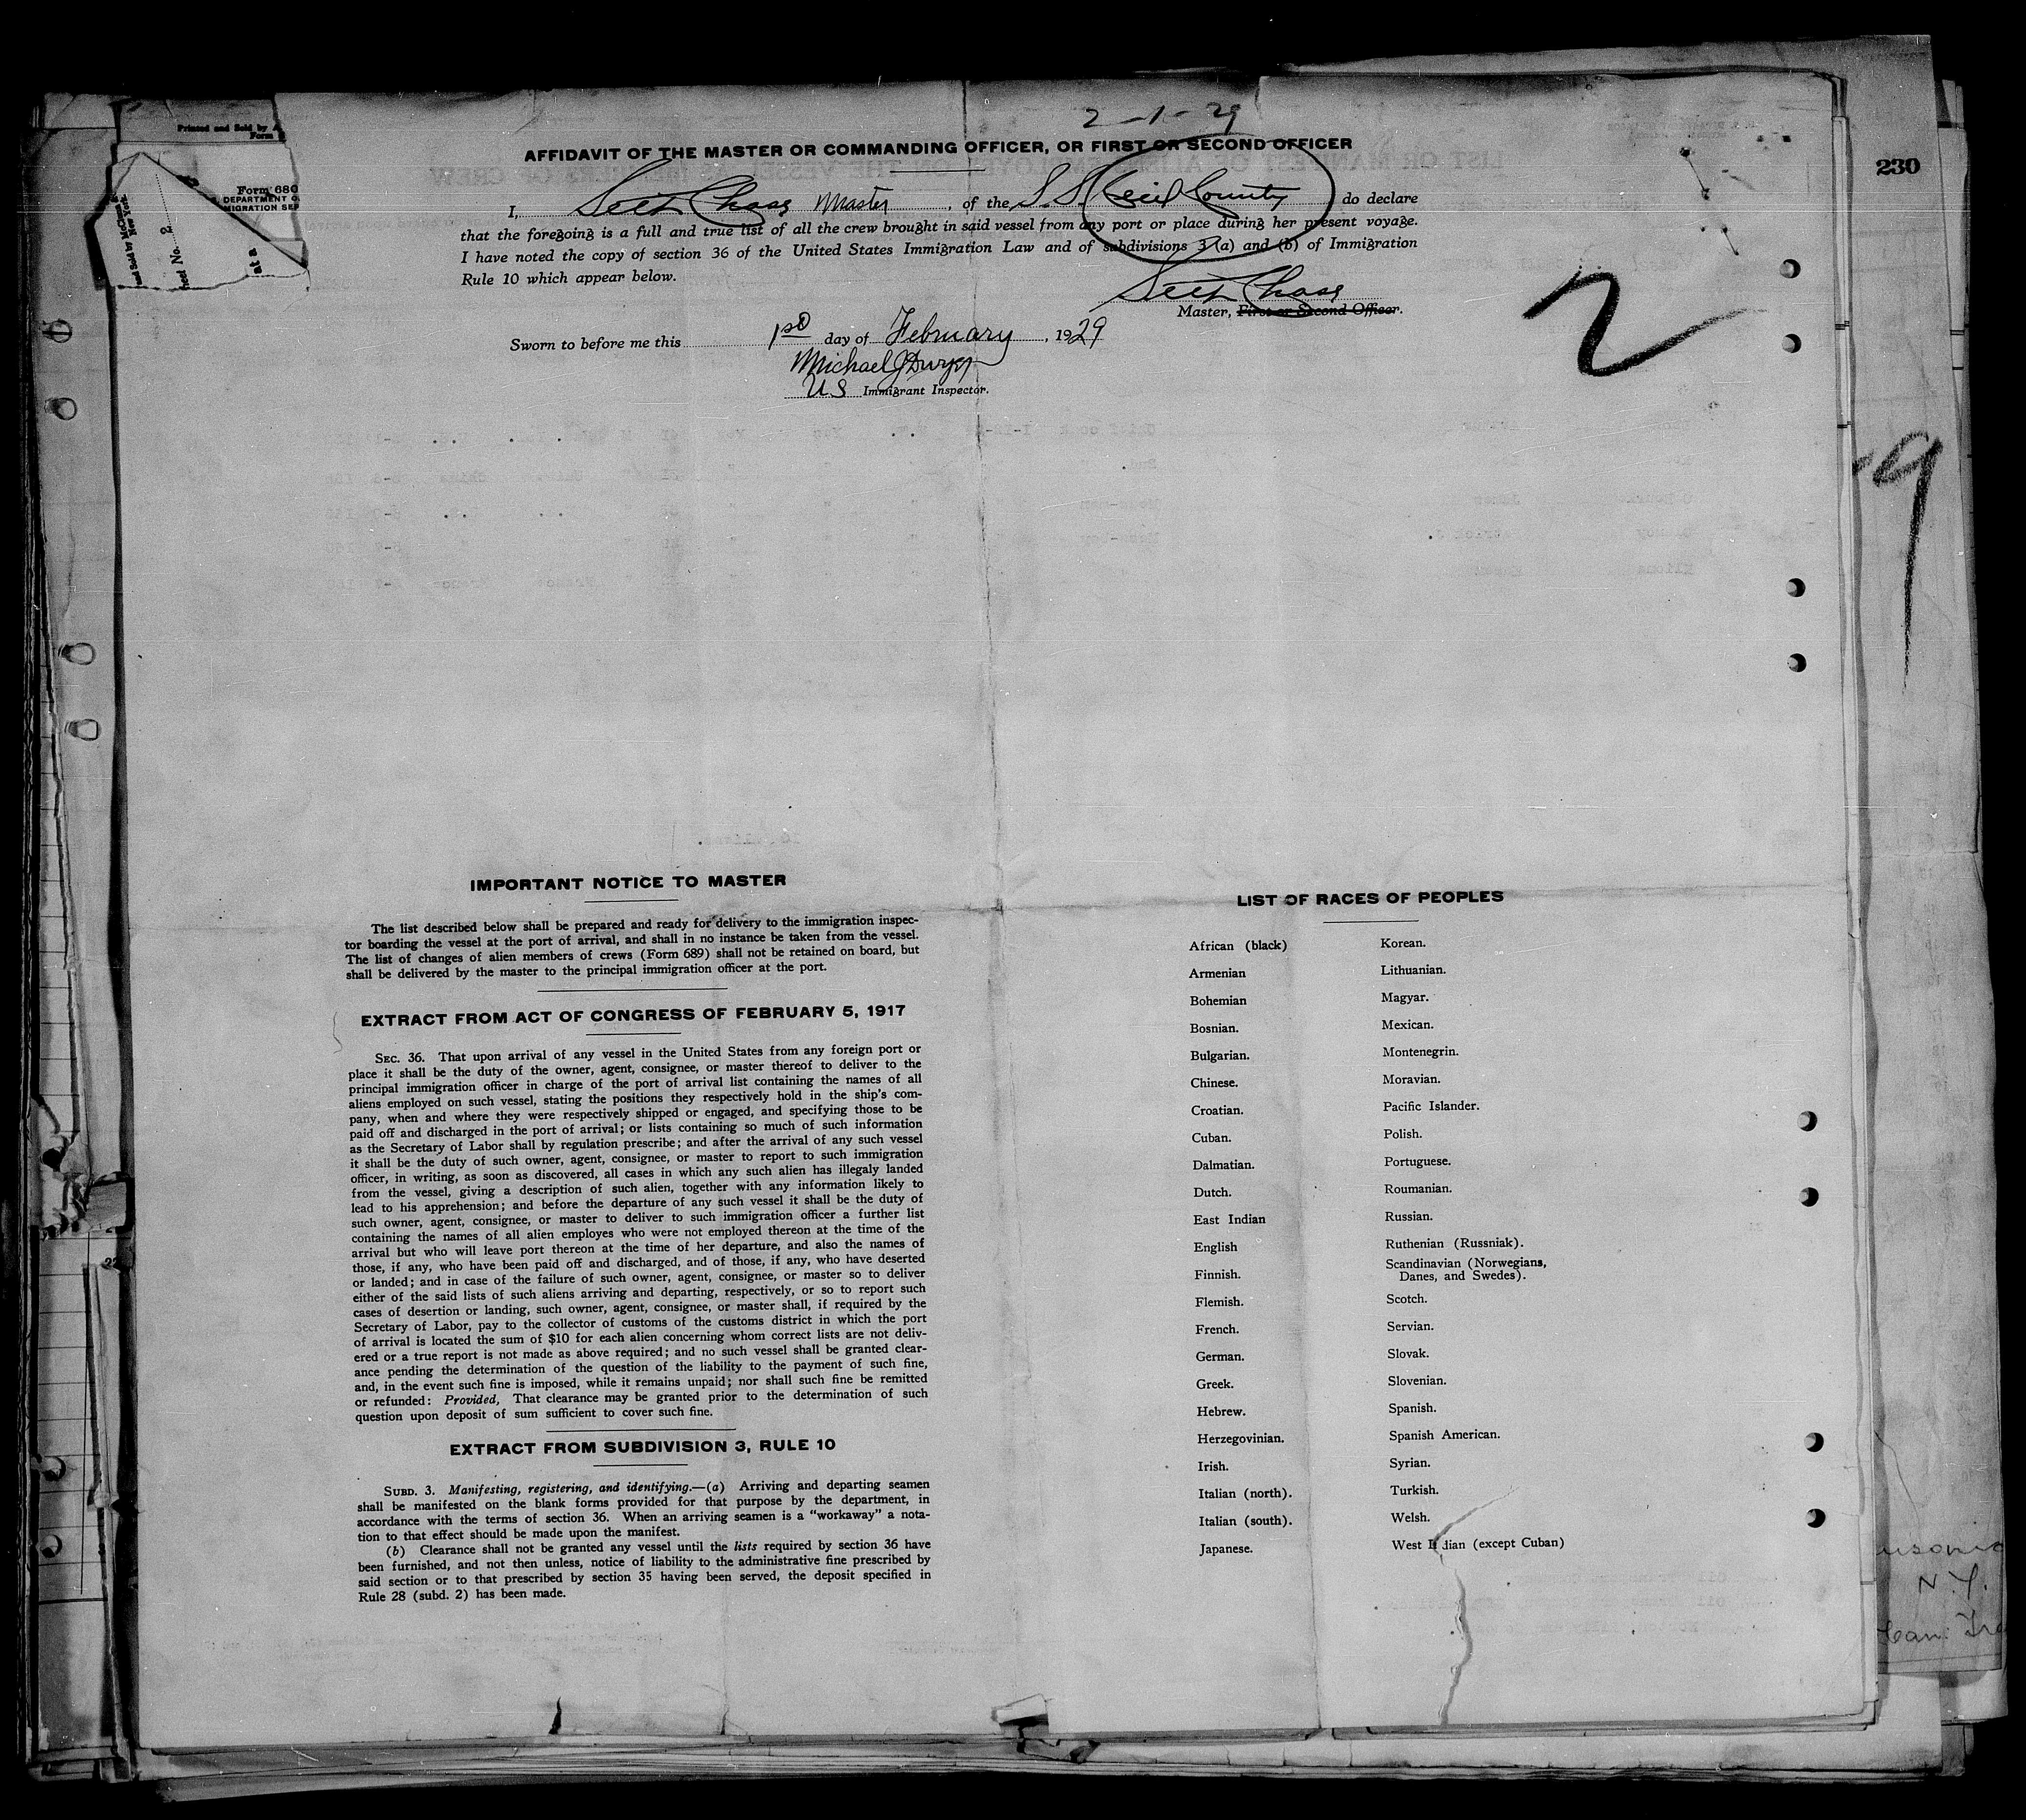 2-1-29
230
Printed and Sold by
Form
Form 680
DEPARTMENT O
MIGRATION SER
and Sold by McC
New York
heet No. 2
at a
AFFIDAVIT OF THE MASTER OR COMMANDING OFFICER, OR FIRST OR SECOND OFFICER
I, Seth Chase Master, of the S.S. Cecil County do declare
that the foregoing is a full and true list of all the crew brought in said vessel from any port or place during her present voyage.
I have noted the copy of section 36 of the United States Immigration Law and of subdivisions 3 (a) and (b) of Immigration
Rule 10 which appear below.
Seth Chase
Master, First or Second Officer.
2
Sworn to before me this 1st day of February, 1929
Michael J Dwyer
US Immigrant Inspector.
9
IMPORTANT NOTICE TO MASTER
The list described below shall be prepared and ready for delivery to the immigration inspec-
tor boarding the vessel at the port of arrival, and shall in no instance be taken from the vessel.
The list of changes of alien members of crews (Form 689) shall not be retained on board, but
shall be delivered by the master to the principal immigration officer at the port.
EXTRACT FROM ACT OF CONGRESS OF FEBRUARY 5, 1917
SEC. 36. That upon arrival of any vessel in the United States from any foreign port or
place it shall be the duty of the owner, agent, consignee, or master thereof to deliver to the
principal immigration officer in charge of the port of arrival list containing the names of all
aliens employed on such vessel, stating the positions they respectively hold in the ship's com-
pany, when and where they were respectively shipped or engaged, and specifying those to be
paid off and discharged in the port of arrival; or lists containing so much of such information
as the Secretary of Labor shall by regulation prescribe; and after the arrival of any such vessel
it shall be the duty of such owner, agent, consignee, or master to report to such immigration
officer, in writing, as soon as discovered, all cases in which any such alien has illegaly landed
from the vessel, giving a description of such alien, together with any information likely to
lead to his apprehension; and before the departure of any such vessel it shall be the duty of
such owner, agent, consignee, or master to deliver to such immigration officer a further list
containing the names of all alien employes who were not employed thereon at the time of the
arrival but who will leave port thereon at the time of her departure, and also the names of
those, if any, who have been paid off and discharged, and of those, if any, who have deserted
or landed; and in case of the failure of such owner, agent, consignee, or master so to deliver
either of the said lists of such aliens arriving and departing, respectively, or so to report such
cases of desertion or landing, such owner, agent, consignee, or master shall, if required by the
Secretary of Labor, pay to the collector of customs of the customs district in which the port
of arrival is located the sum of $10 for each alien concerning whom correct lists are not deliv-
ered or a true report is not made as above required; and no such vessel shall be granted clear-
ance pending the determination of the question of the liability to the payment of such fine,
and, in the event such fine is imposed, while it remains unpaid; nor shall such fine be remitted
or refunded: Provided, That clearance may be granted prior to the determination of such
question upon deposit of sum sufficient to cover such fine.
EXTRACT FROM SUBDIVISION 3, RULE 10
SUBD. 3. Manifesting, registering, and identifying.—(a) Arriving and departing seamen
shall be manifested on the blank forms provided for that purpose by the department, in
accordance with the terms of section 36. When an arriving seamen is a "workaway" a nota-
tion to that effect should be made upon the manifest.
(b) Clearance shall not be granted any vessel until the lists required by section 36 have
been furnished, and not then unless, notice of liability to the administrative fine prescribed by
said section or to that prescribed by section 35 having been served, the deposit specified in
Rule 28 (subd. 2) has been made.
LIST OF RACES OF PEOPLES
African (black)
Armenian
Bohemian
Bosnian.
Bulgarian.
Chinese.
Croatian.
Cuban.
Dalmatian.
Dutch.
East Indian
English
Finnish.
Flemish.
French.
German.
Greek.
Hebrew.
Herzegovinian.
Irish.
Italian (north).
Italian (south).
Japanese.
Korean.
Lithuanian.
Magyar.
Mexican.
Montenegrin.
Moravian.
Pacific Islander.
Polish.
Portuguese.
Roumanian.
Russian.
Ruthenian (Russniak).
Scandinavian (Norwegians,
Danes, and Swedes).
Scotch.
Servian.
Slovak.
Slovenian.
Spanish.
Spanish American.
Syrian.
Turkish.
Welsh.
West Indian (except Cuban)
N.Y.